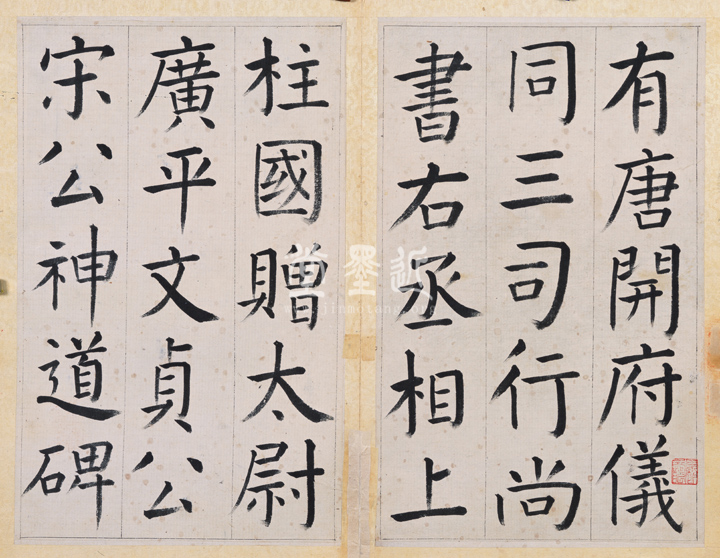 有唐開府儀
同三司行尚
書右丞相上
柱國贈太尉
廣平文貞公
宋公神道碑
近墨堂